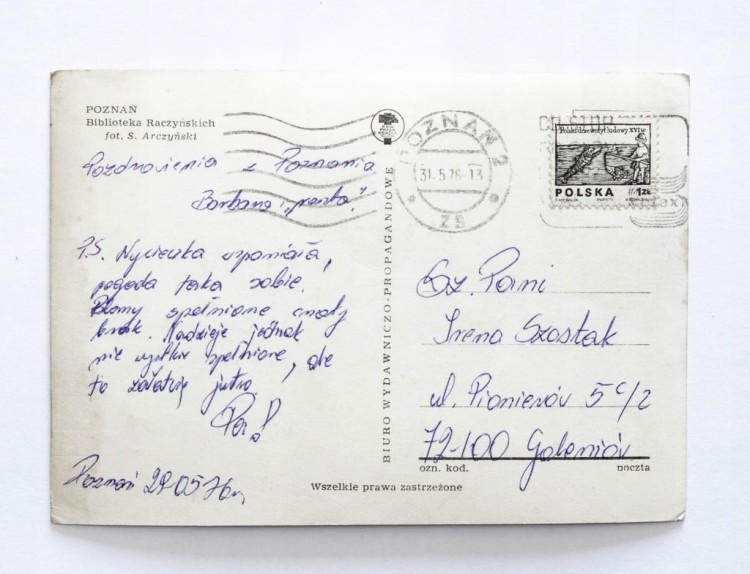 POZNAŃ
Biblioteka Raczyńskich
fot. S. Arczyński
Pozdrowienia z Poznania
Barbara i „reszta"
P.S. Wycieczka wspaniała,
pogoda taka sobie.
Plany spełnione
brak. Nadzieje jednak
nie spełnione, ale
to załatwię jutro,
Pa!
Poznań 29.05.76
Wszelkie prawa zastrzeżone
BIURO WYDAWNICZO-PROPAGANDOWE
POZNAŃ 2
31.5.76-13
Polski drzeworyt ludowy XVI w.
POLSKA 1ZŁ
Sz. Pani
Irena Szostak
ul. Pionierów 5c/2
72-100 Goleniów
ozn. kod. poczta